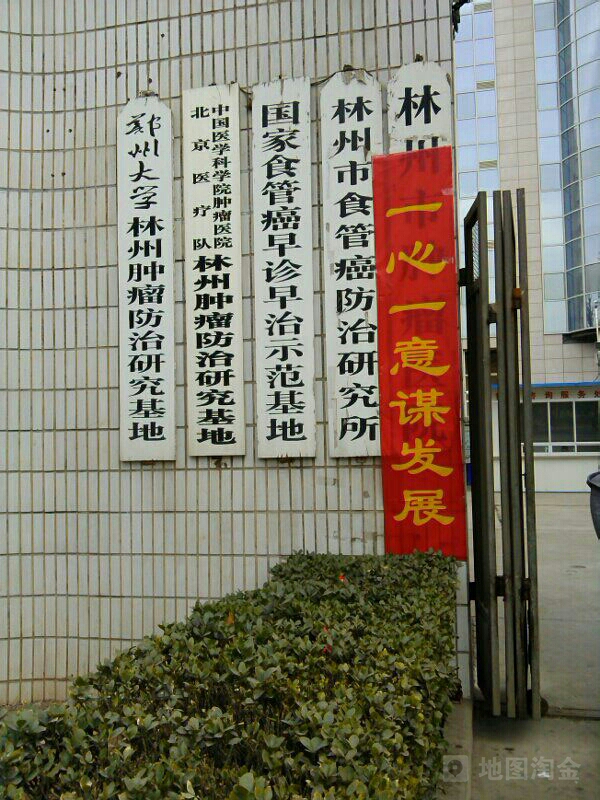 郑州大学林州肿瘤防治研究基地
中国医学科学院肿瘤医院
北京医疗队
林州肿瘤防治研究基地
国家食管癌早诊早治示范基地
林州市食管癌防治研究所
林州市肿瘤医院
一心一意谋发展
询服务处
地图淘金